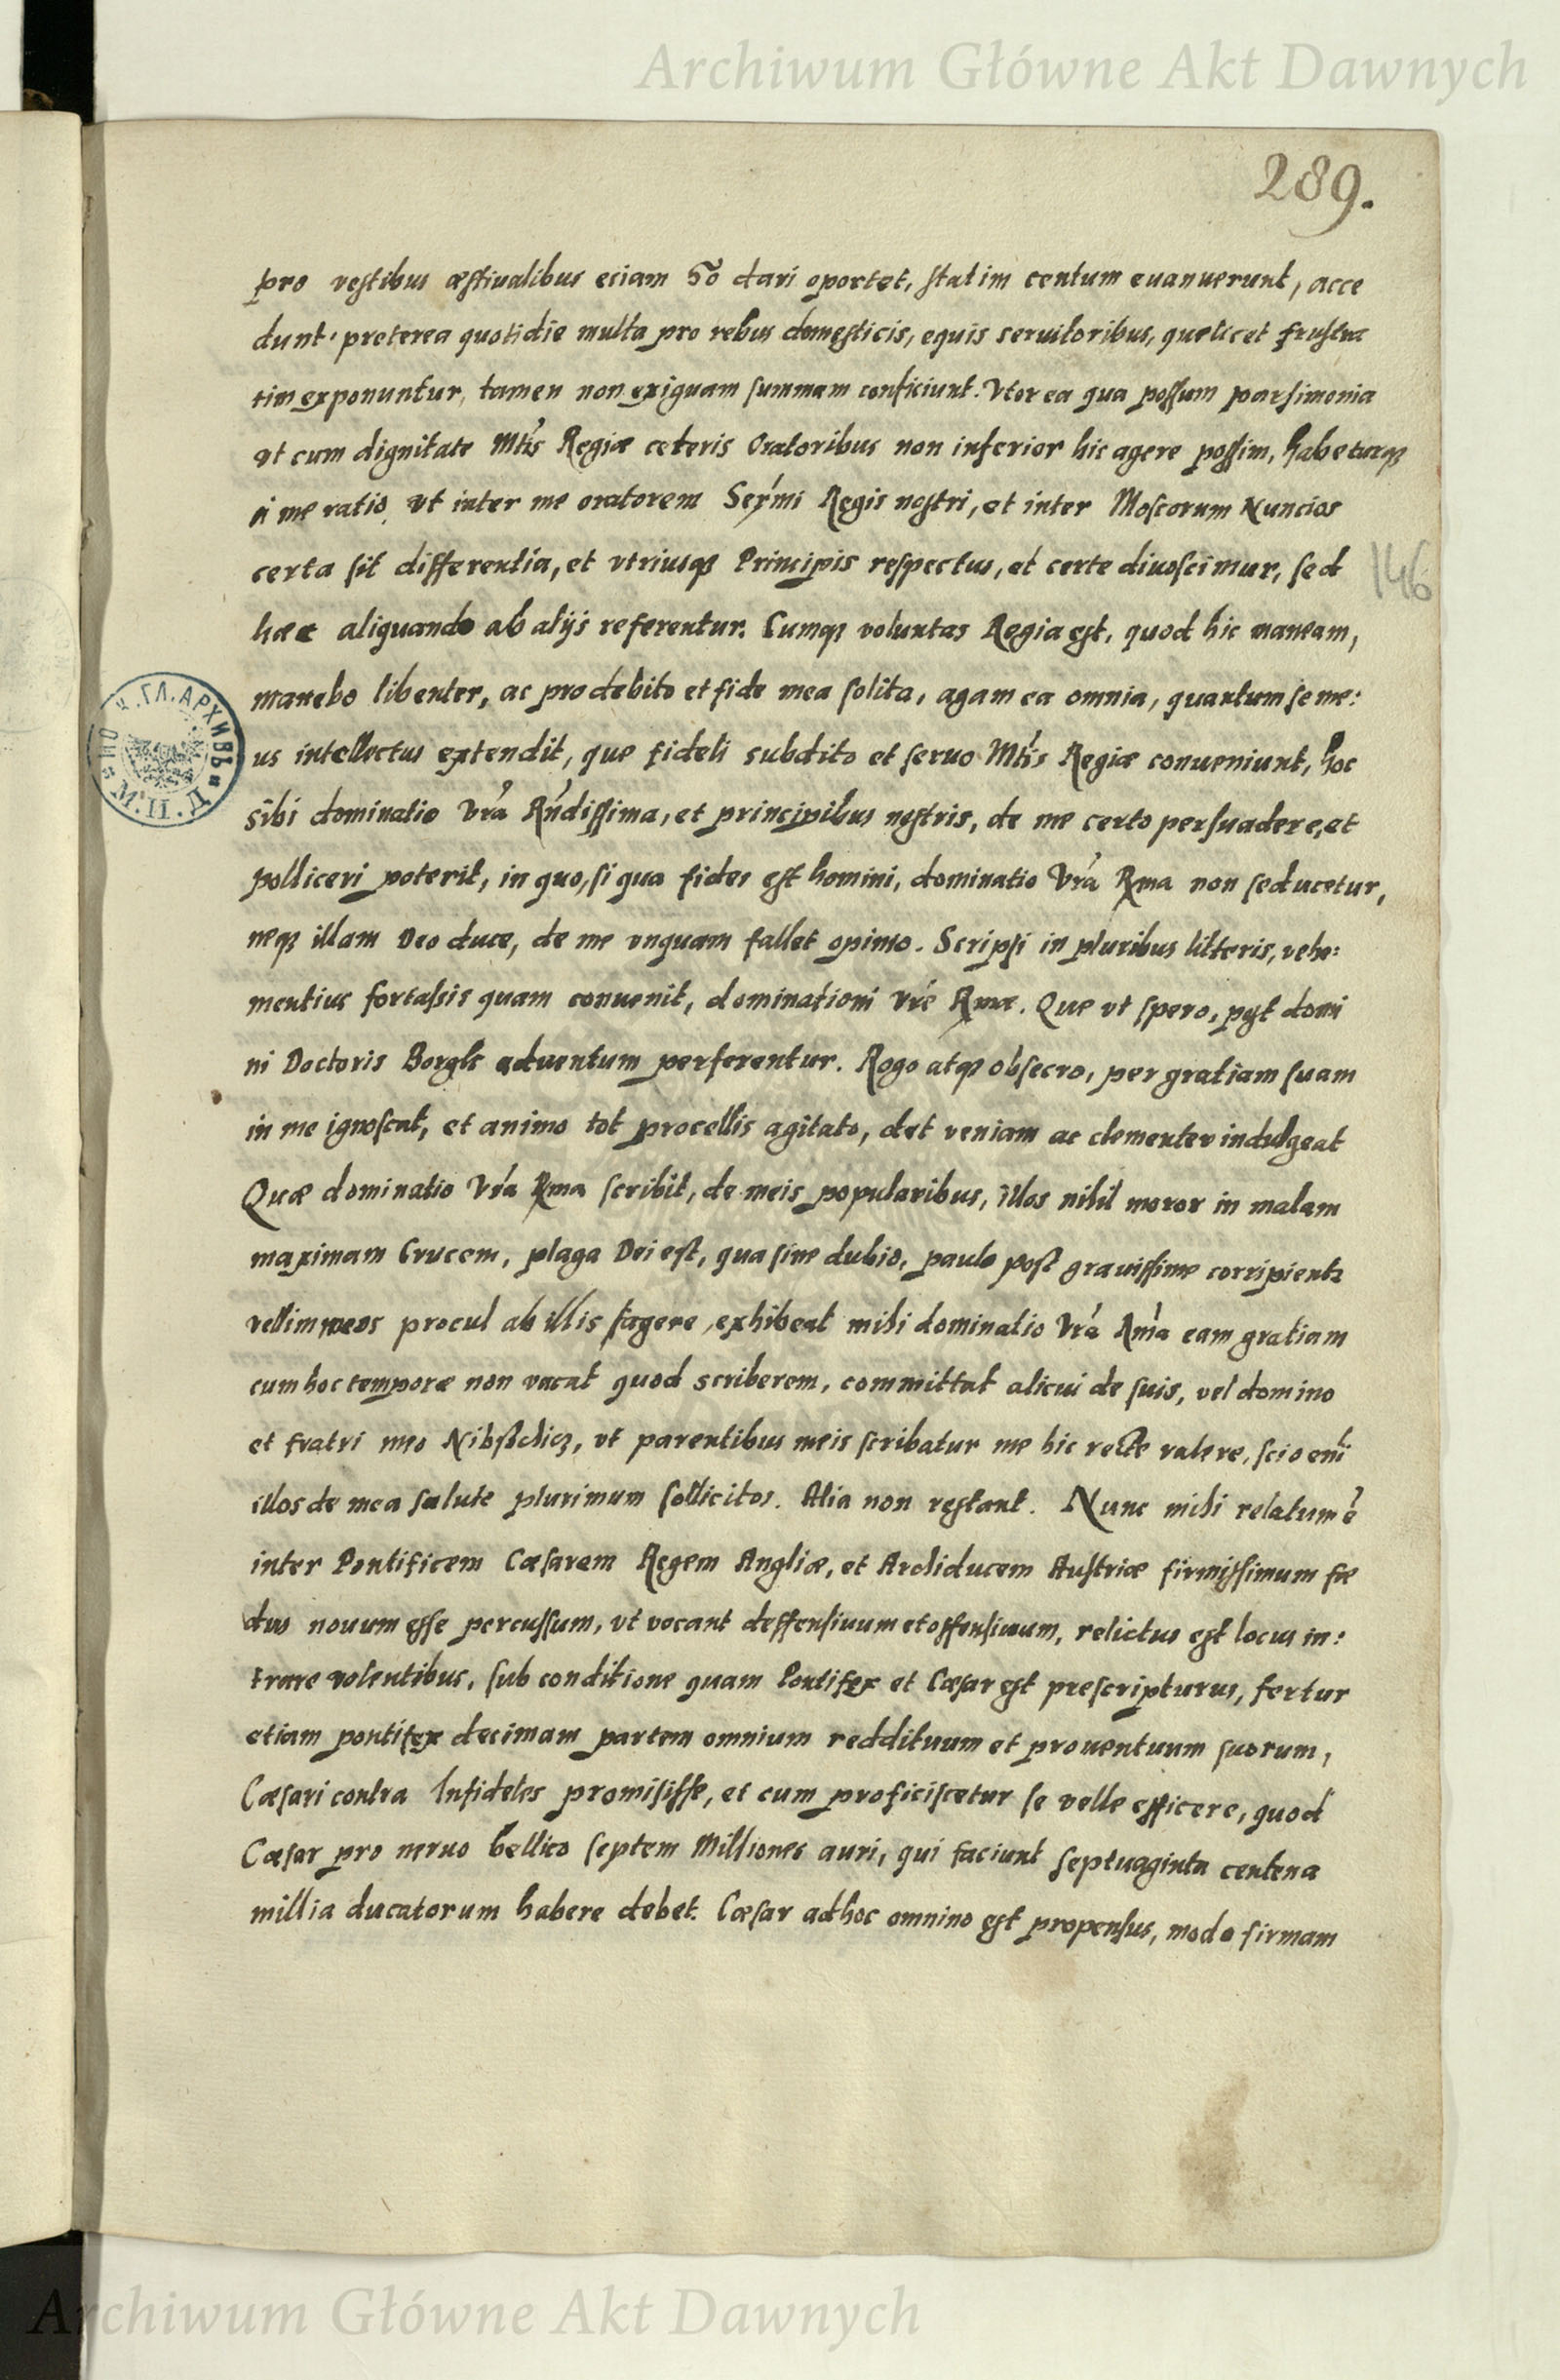 Archiwum Główne Akt Dawnych
289.
pro vestibus æstivalibus eciam 50 dari oportet, statim centum euanuerunt, acce
dunt preterea quotidie multa pro rebus domesticis, equis seruitoribus, que licet frusta
tim exponuntur, tamen non exiguam summam conficiunt. Vtor ea qua possum parsimonia
vt cum dignitate Mtis Regiæ ceteris Oratoribus non inferior hic agere possim, habeturq3
a me ratio, vt inter me oratorem Sermi Regis nostri, et inter Moscorum Nuncios
certa sit differentia, et vtriusq3 Principis respectus, et certe dinoscimur, sed
hæc aliquando ab alijs referentur. Cumq3 voluntas Regia est, quod hic maneam,
manebo libenter, ac pro debito et fide mea solita, agam ea omnia, quantum se me:
us intellectus extendit, que fideli subdito et seruo Mtis Regiæ conueniunt, hoc
sibi dominatio Vra Rndissima, et principibus nostris, de me certo persuadere, et
polliceri poterit, in quo, si qua fides est homini, dominatio Vra Rma non seducetur,
neq3 illam Deo duce, de me vnquam fallet opinio. Scripsi in pluribus litteris, vehe:
mentius fortassis quam conuenit, dominationi Vre Rmæ. Que vt spero, post domi
ni Doctoris Borgk aduentum perferentur. Rogo atq3 obsecro, per gratiam suam
in me ignoscat, et animo tot procellis agitato, det veniam ac clementer indulgeat
Quæ dominatio Vra Rma scribit, de meis popularibus, illos nihil moror in malam
maximam Crucem, plaga Dei est, qua sine dubio, paulo post grauissime corripientr
vellim meos procul ab illis tagere, exhibeat mihi dominatio Vra Rma eam gratiam
cum hoc temporæ non vacat quod scriberem, committat alicui de suis, vel domino
et fratri meo Nibschicz, vt parentibus meis scribatur me hic recte valere, scio eni
illos de mea salute plurimum sollicitos. Alia non restant. Nunc mihi relatum e
inter Pontificem Cæsarem Regem Angliæ, et Archiducem Austriæ firmissimum fœ
dus nouum esse percussum, vt vocant deffensiuum et offensiuum, relictus est locus in:
trare volentibus, sub conditione quam Pontifex et Cæsar est prescripturus, fertur
etiam pontifex decimam partem omnium reddituum et prouentuum suorum,
Cæsari contra Infideles promisisse, et cum proficiscetur se velle efficere, quod
Cæsar pro neruo bellico septem Milliones auri, qui faciunt septuaginta centena
millia ducatorum habere debet. Cæsar ad hoc omnino est propensus, modo firmam
146
Archiwum Główne Akt Dawnych